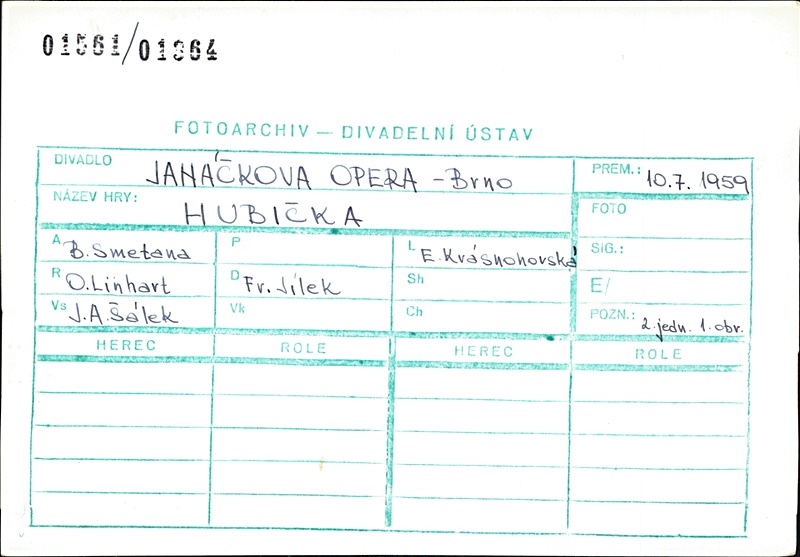 01561/01364
FOTOARCHIV — DIVADELNÍ ÚSTAV
DIVADLO JANÁČKOVA OPERA - Brno PREM.: 10.7. 1959
NÁZEV HRY: HUBIČKA FOTO
A B. Smetana P L E. Krásnohorská SIG.:
R O. Linhart D Fr. Jílek Sh E/
Vs J.A. Šálek Vk Ch POZN.: 2. jedn. 1. obr.
HEREC ROLE HEREC ROLE